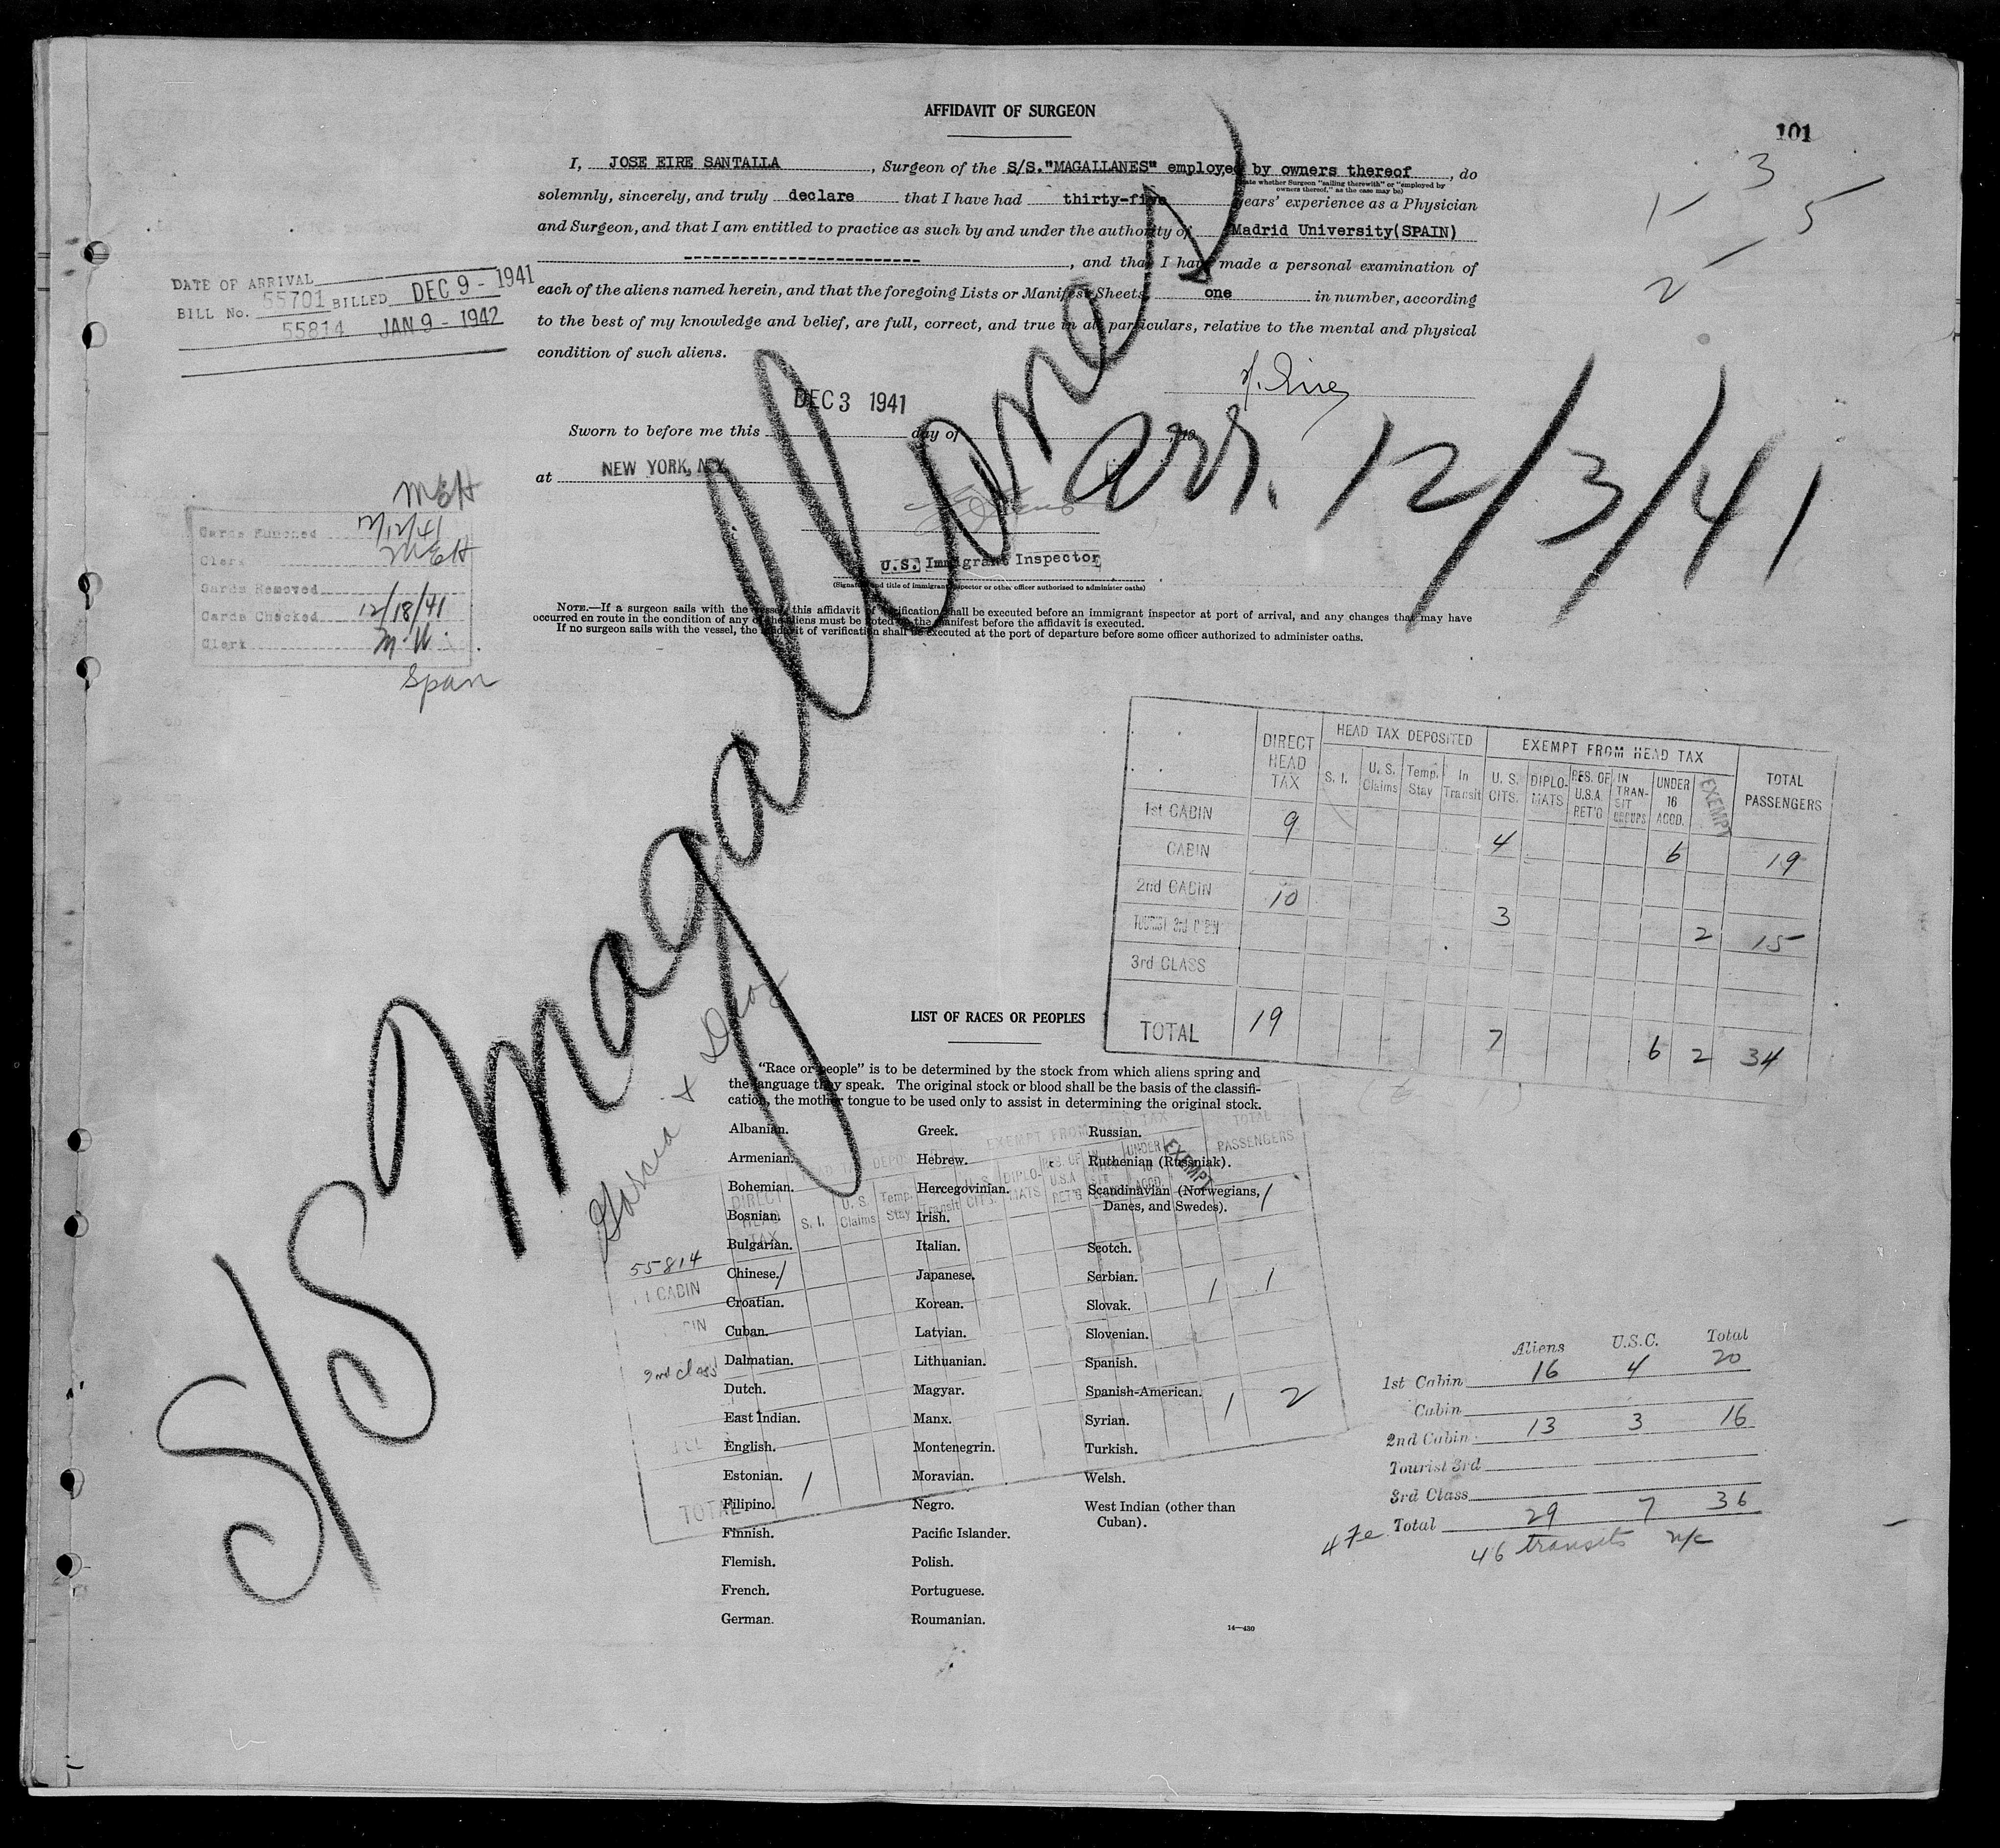 AFFIDAVIT OF SURGEON
101
I, JOSE EIRE SANTALLA, Surgeon of the S/S."MAGALLANES" employed by owners thereof, do
(State whether Surgeon "sailing therewith" or "employed by owners thereof," as the case may be)
solemnly, sincerely, and truly declare that I have had thirty-five years' experience as a Physician
and Surgeon, and that I am entitled to practice as such by and under the authority of Madrid University(SPAIN)
------------------------, and that I have made a personal examination of
each of the aliens named herein, and that the foregoing Lists or Manifest Sheets, one in number, according
to the best of my knowledge and belief, are full, correct, and true in all particulars, relative to the mental and physical
condition of such aliens.
3
1 - 5
2 -
DATE OF ARRIVAL
BILL No. 55701 BILLED DEC 9 - 1941
55814 JAN 9 - 1942
J. Eire
DEC 3 1941
Sworn to before me this day of , 19
at NEW YORK, N.Y.
U.S. Immigrant Inspector
(Signature and title of immigrant inspector or other officer authorized to administer oaths)
NOTE.—If a surgeon sails with the vessel, this affidavit of verification shall be executed before an immigrant inspector at port of arrival, and any changes that may have
occurred en route in the condition of any of the aliens must be noted on the manifest before the affidavit is executed.
If no surgeon sails with the vessel, the affidavit of verification shall be executed at the port of departure before some officer authorized to administer oaths.
S/S Magallanes
arr. 12/3/41
MEH
Cards Punched 12/12/41
Clerk MEH
Cards Removed
Cards Checked 12/18/41
Clerk M.W.
Span
DIRECT HEAD TAX
HEAD TAX DEPOSITED
EXEMPT FROM HEAD TAX
TOTAL PASSENGERS
S. I. U. S. Claims Temp. Stay In Transit U. S. CITS. DIPLOMATS RES. OF U.S.A. RET'G IN TRANSIT GROUPS UNDER 16 ACCD. EXEMPT
1st CABIN 9 4 6 19
CABIN
2nd CABIN 10 3 2 15
TOURIST 3rd CABIN
3rd CLASS
TOTAL 19 7 6 2 34
Garcia + Diaz
LIST OF RACES OR PEOPLES
"Race or people" is to be determined by the stock from which aliens spring and
the language they speak. The original stock or blood shall be the basis of the classifi-
cation, the mother tongue to be used only to assist in determining the original stock.
Albanian.
Armenian.
Bohemian.
Bosnian.
Bulgarian.
Chinese.
Croatian.
Cuban.
Dalmatian.
Dutch.
East Indian.
English.
Estonian.
Filipino.
Finnish.
Flemish.
French.
German.
Greek.
Hebrew.
Hercegovinian.
Irish.
Italian.
Japanese.
Korean.
Latvian.
Lithuanian.
Magyar.
Manx.
Montenegrin.
Moravian.
Negro.
Pacific Islander.
Polish.
Portuguese.
Roumanian.
Russian.
Ruthenian (Russniak).
Scandinavian (Norwegians,
Danes, and Swedes).
Scotch.
Serbian.
Slovak.
Slovenian.
Spanish.
Spanish-American.
Syrian.
Turkish.
Welsh.
West Indian (other than
Cuban).
14—430
EXEMPT FROM TAX
TOTAL PASSENGERS
DIRECT HEAD TAX S. I. U. S. Claims Temp. Stay Transit U.S. CITS. DIPLOMATS RES. OF U.S.A. RET'G UNDER 16 ACCD. EXEMPT
55814
CABIN 1 1 1
2nd Class
TOTAL 1 1 2
Aliens U.S.C. Total
1st Cabin 16 4 20
Cabin
2nd Cabin 13 3 16
Tourist 3rd
3rd Class
Total 29 7 36
46 transits n/c